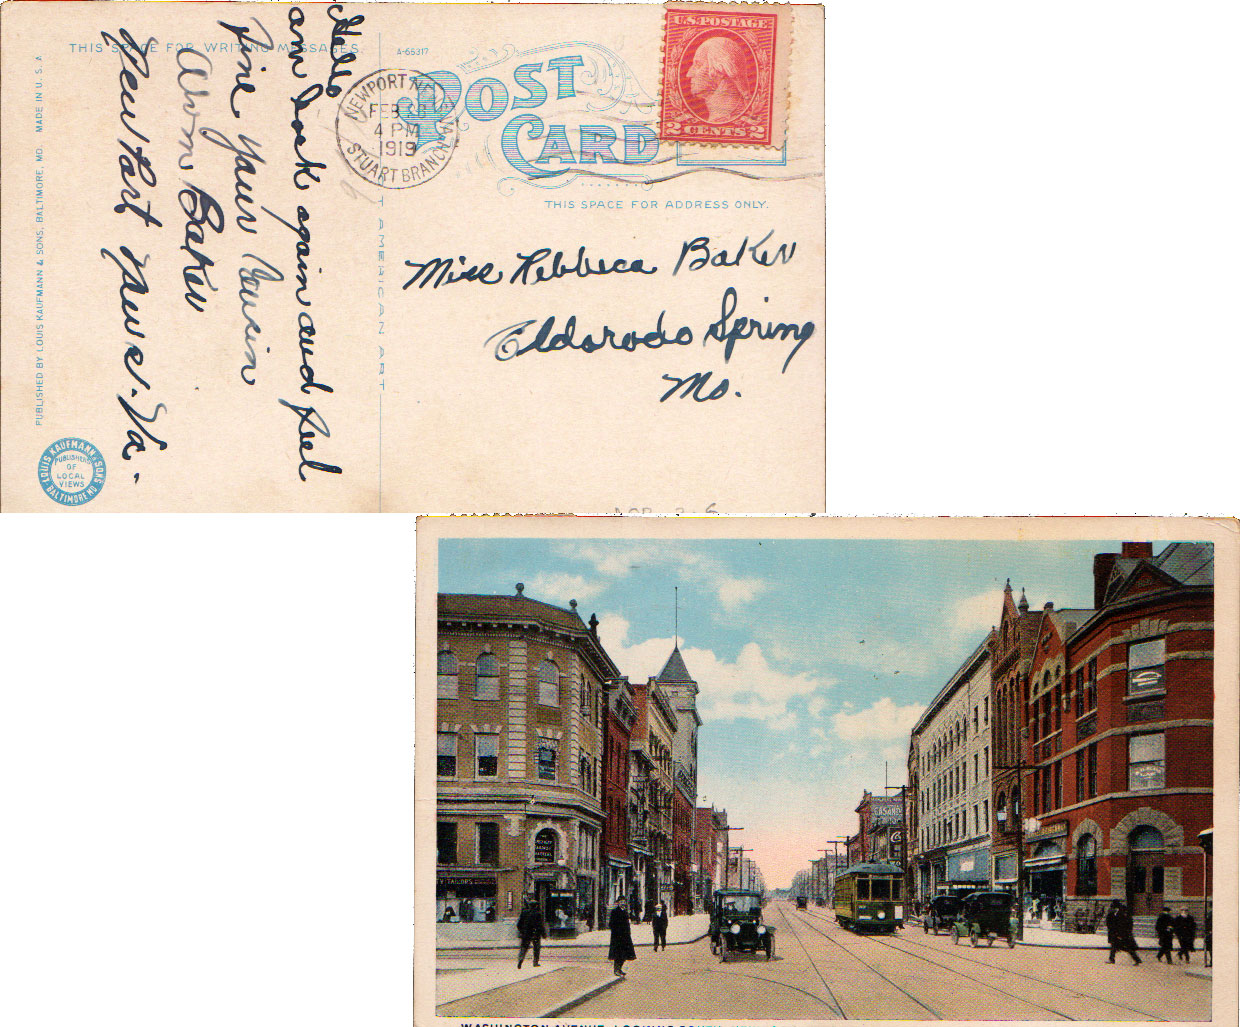 THIS SPACE FOR WRITING MESSAGES.
A-65317
POST
CARD
U.S. POSTAGE
2 CENTS 2
NEWPORT NEWS, VA.
FEB 28
4 PM
1919
STUART BRANCH
THIS SPACE FOR ADDRESS ONLY.
Hello
am back again and feel
fine your Cousin
Alvin Baker
New Port News. Va.
Miss Rebbeca Baker
Eldorodo Spring
Mo.
AMERICAN ART
PUBLISHED BY LOUIS KAUFMANN & SONS, BALTIMORE, MD. MADE IN U. S. A.
LOUIS KAUFMANN & SONS
BALTIMORE MD
PUBLISHERS
OF
LOCAL
VIEWS
TAILORS
WASHINGTON AVENUE, LOOKING SOUTH